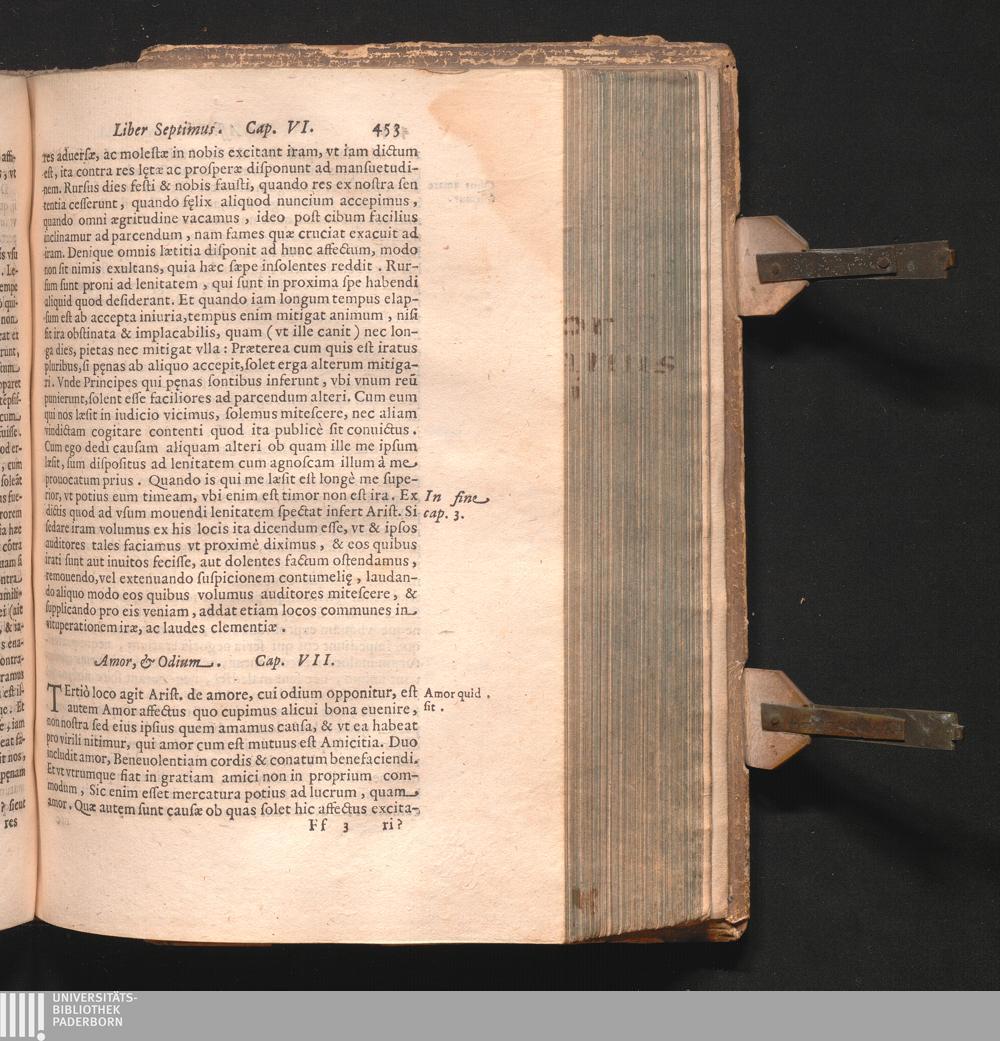 Liber Septimus. Cap. VI. 453
res aduersæ, ac molestæ in nobis excitant iram, vt iam dictum
est, ita contra res lętæ ac prosperæ disponunt ad mansuetudi-
nem. Rursus dies festi & nobis fausti, quando res ex nostra sen
tentia cesserunt, quando fęlix aliquod nuncium accepimus,
quando omni ægritudine vacamus, ideo post cibum facilius
inclinamur ad parcendum, nam fames quæ cruciat exacuit ad
iram. Denique omnis lætitia disponit ad hunc affectum, modo
non sit nimis exultans, quia hæc sæpe insolentes reddit. Rur-
sum sunt proni ad lenitatem, qui sunt in proxima spe habendi
aliquid quod desiderant. Et quando iam longum tempus elap-
sum est ab accepta iniuria, tempus enim mitigat animum, nisi
sit ira obstinata & implacabilis, quam (vt ille canit) nec lon-
ga dies, pietas nec mitigat vlla: Præterea cum quis est iratus
pluribus, si pęnas ab aliquo accepit, solet erga alterum mitiga-
ri. Vnde Principes qui pęnas sontibus inferunt, vbi vnum reū
punierunt, solent esse faciliores ad parcendum alteri. Cum eum
qui nos læsit in iudicio vicimus, solemus mitescere, nec aliam
vindictam cogitare contenti quod ita publicè sit conuictus.
Cum ego dedi causam aliquam alteri ob quam ille me ipsum
læsit, sum dispositus ad lenitatem cum agnoscam illum à me
prouocatum prius. Quando is qui me læsit est longè me supe-
rior, vt potius eum timeam, vbi enim est timor non est ira. Ex
dictis quod ad vsum mouendi lenitatem spectat infert Arist. Si
sedare iram volumus ex his locis ita dicendum esse, vt & ipsos
auditores tales faciamus vt proximè diximus, & eos quibus
irati sunt aut inuitos fecisse, aut dolentes factum ostendamus,
remouendo, vel extenuando suspicionem contumelię, laudan-
do aliquo modo eos quibus volumus auditores mitescere, &
supplicando pro eis veniam, addat etiam locos communes in
vituperationem iræ, ac laudes clementiæ.
In fine
cap. 3.
Amor, & Odium. Cap. VII.
TErtiò loco agit Arist. de amore, cui odium opponitur, est
autem Amor affectus quo cupimus alicui bona euenire,
non nostra sed eius ipsius quem amamus causa, & vt ea habeat
pro virili nitimur, qui amor cum est mutuus est Amicitia. Duo
includit amor, Beneuolentiam cordis & conatum benefaciendi.
Et vt vtrumque fiat in gratiam amici non in proprium com-
modum, Sic enim esset mercatura potius ad lucrum, quam
amor. Quæ autem sunt causæ ob quas solet hic affectus excita-
Amor quid
sit.
Ff 3 ri?
res
UNIVERSITÄTS-
BIBLIOTHEK
PADERBORN